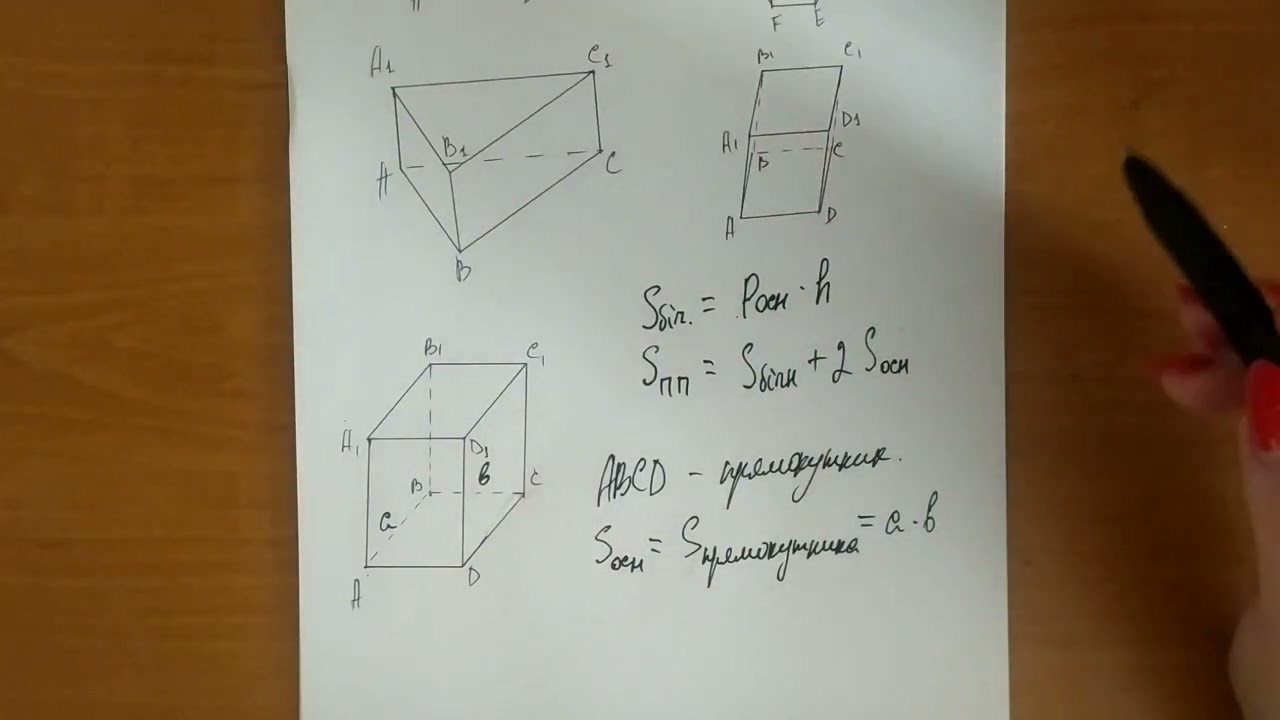 F E
A1 C1
B1
A C
B
B1 C1
A1 D1
B C
A D
Sбіч. = Pосн · h
Sпп = Sбічн + 2 Sосн
B1 C1
A1 D1
в
B C
a
A D
ABCD - прямокутник.
Sосн = Sпрямокутника = a · в